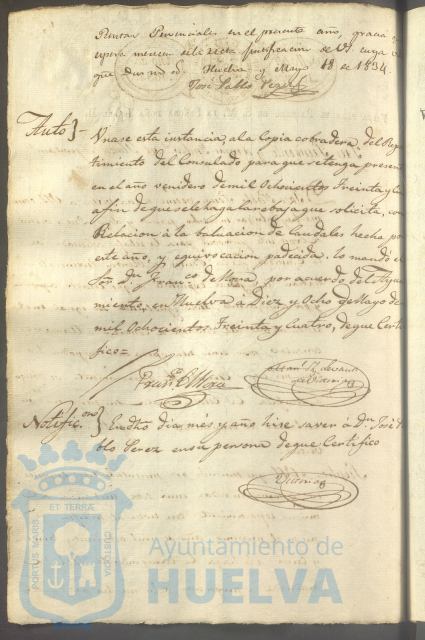 Rentas Provinciales en el presente año, gracia q
espera merecer de la recta justificacion de V. cuya
que Dios m. a. Huelva y Mayo 18 de 1834.
José Pablo Perez
Auto}- Vnase esta instancia, ala Copia cobradera, del Repar
timiento del Consulado para que se tenga presen
en el año venidero de mil Ochocientos Treinta y
afin de que se le haga la rebaja que solicita, con
Relacion à la baluacion de Caudales hecha por
este año, y equivocacion padecida. lo mandó el
Sor. Dn. Franco. de Mora, por acuerdo del Ayun
miento, en Huelva à Diez, y Ocho de Mayo de
mil Ochocientos Treinta y Cuatro, de que Certi
fico=
Notificon} En dho dia, mes, y año hise saver à Dn. José
blo Perez en su persona de que Certifico
PORTUS MARIS ET TERRÆ CUSTODIA
Ayuntamiento de
HUELVA